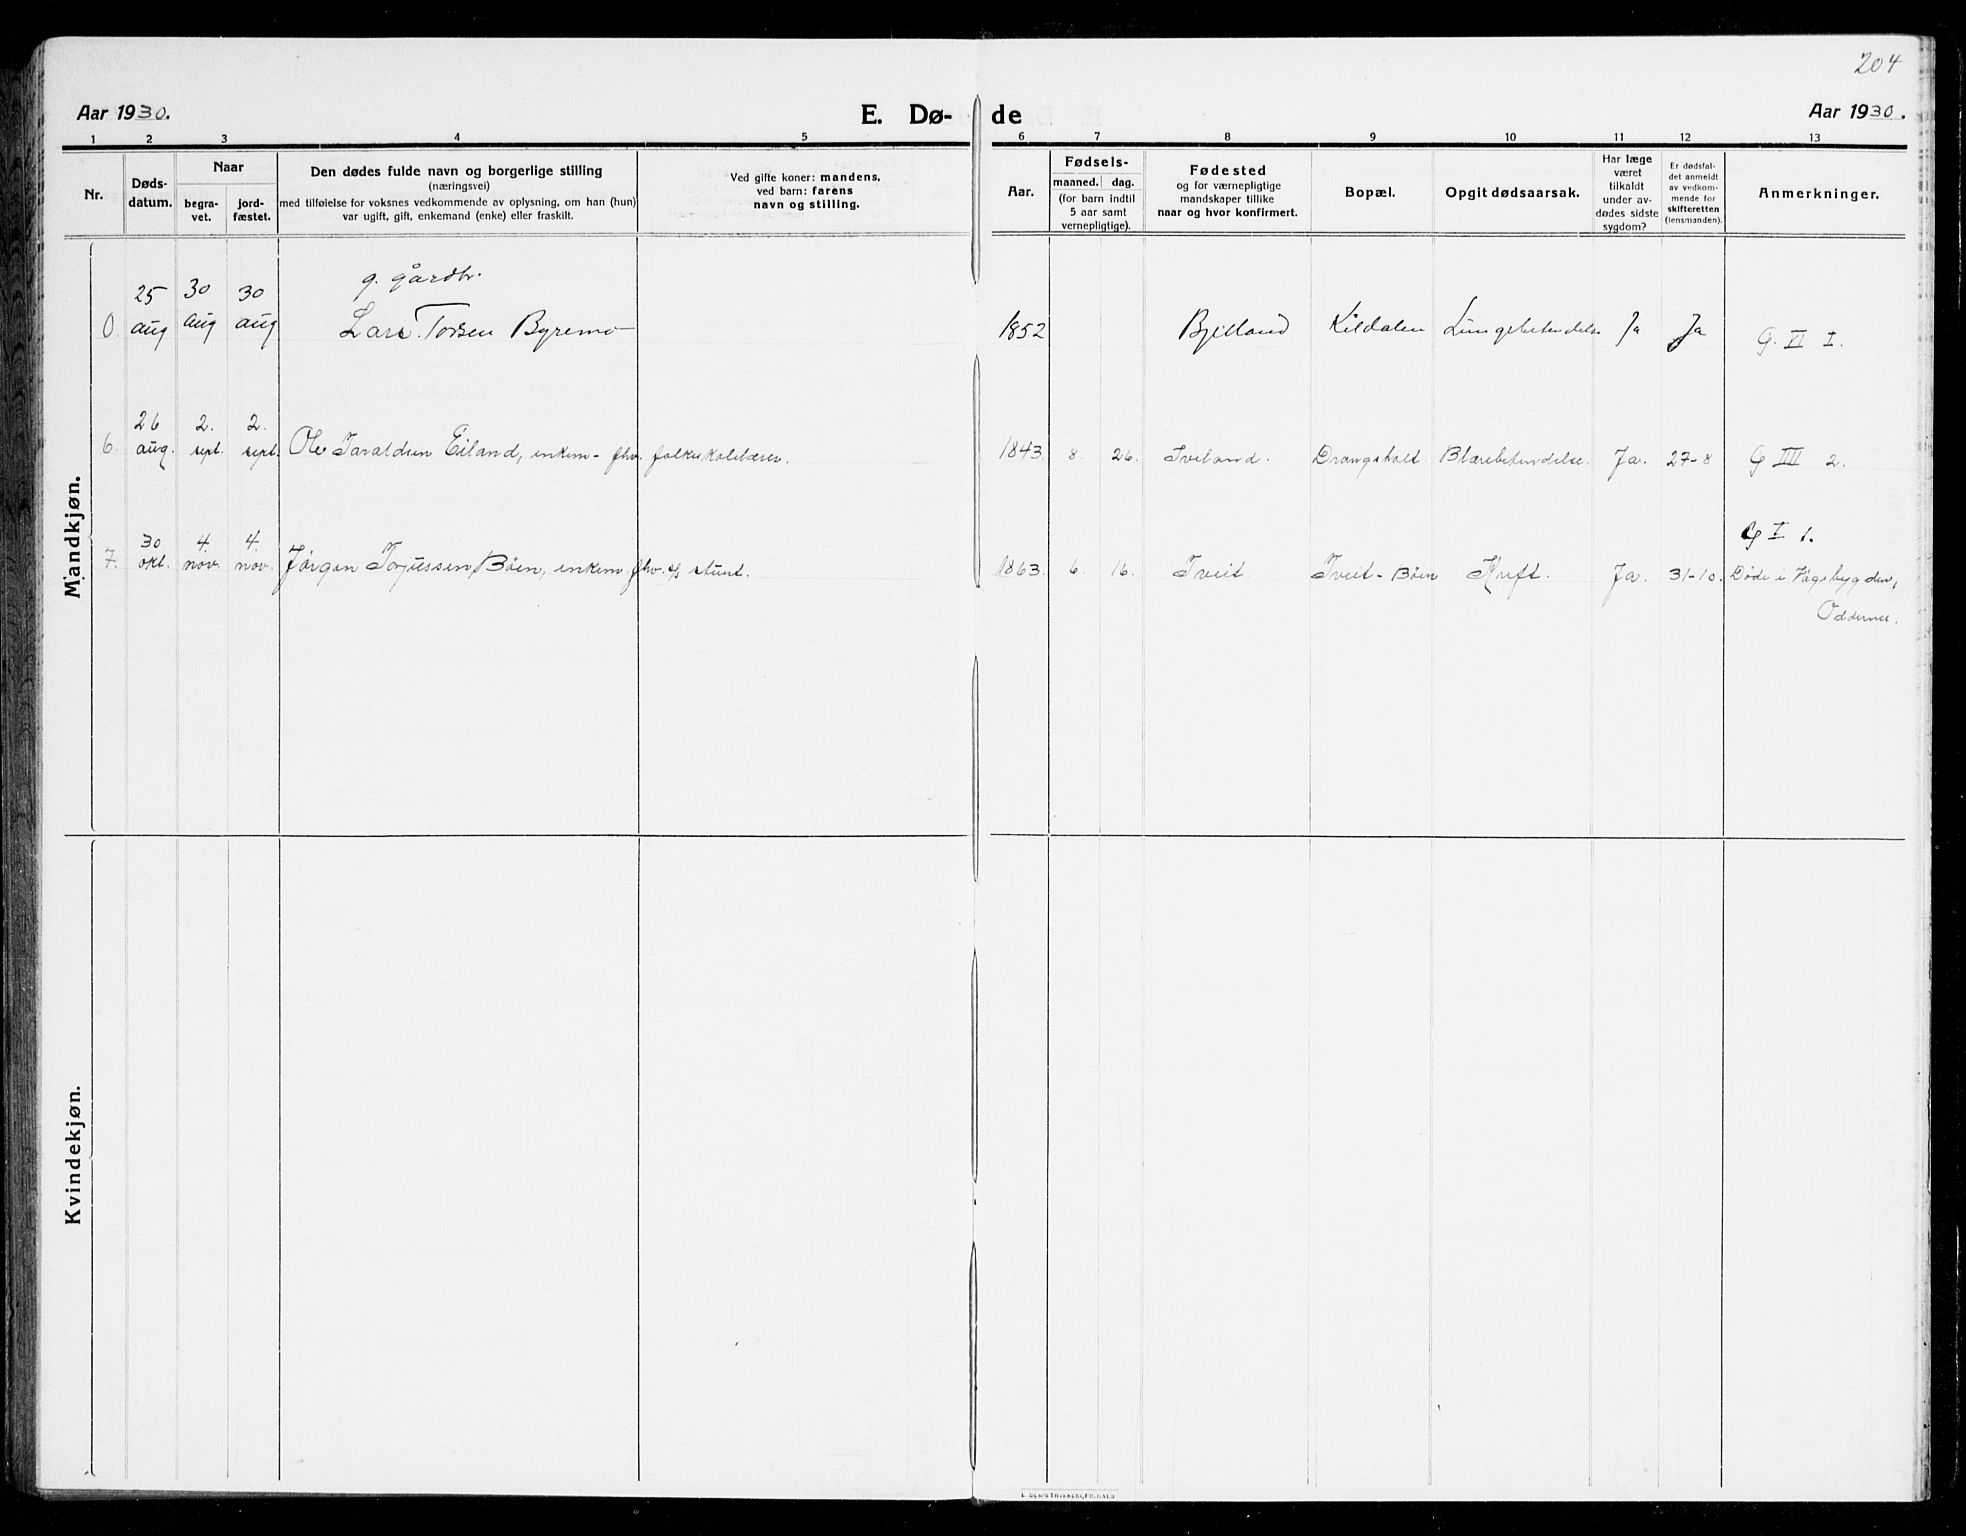 204
Aar 1930.
E. Dø- de
Aar 1930.
1 2 3 4 5 6 7 8 9 10 11 12 13
Nr.
Døds-
datum.
Naar
begra-
vet.
jord-
fæstet.
Den dødes fulde navn og borgerlige stilling
(næringsvei)
med tilføielse for voksnes vedkommende av oplysning, om han (hun)
var ugift, gift, enkemand (enke) eller fraskilt.
Ved gifte koner: mandens,
ved barn: farens
navn og stilling.
Aar.
Fødsels-
maaned. dag.
(for barn indtil
5 aar samt
vernepligtige).
Fødested
og for værnepligtige
mandskaper tillike
naar og hvor konfirmert.
Bopæl.
Opgit dødsaarsak.
Har læge
været
tilkaldt
under av-
dødes sidste
sygdom?
Er dødsfal-
det anmeldt
av vedkom-
mende for
skifteretten
(lensmanden).
Anmerkninger.
Mandkjøn.
g. gårdbr.
25 30 30
0. aug aug aug Lars Torsen Byremo 1852 Bjelland Kildalen Lungebetendelse Ja Ja G. VI I.
26 2. 2.
6. aug. sept. sept. Ole Tavaldsen Eiland, enkem- fhv. folkeskolelærer. 1843. 8. 26. Iveland. Drangsholt. Blærebetendelse. Ja. 27-8 G III 2.
30 4. 4. G I 1.
7. okt. nov. nov. Jørgen Torjussen Bøen, enkem. fhv. d/s stuert. 1863. 6. 16. Tveit Tveit-Bøen Kreft. Ja. 31-10. Døde i Vågsbygden,
Oddernes.
Kvindekjøn.